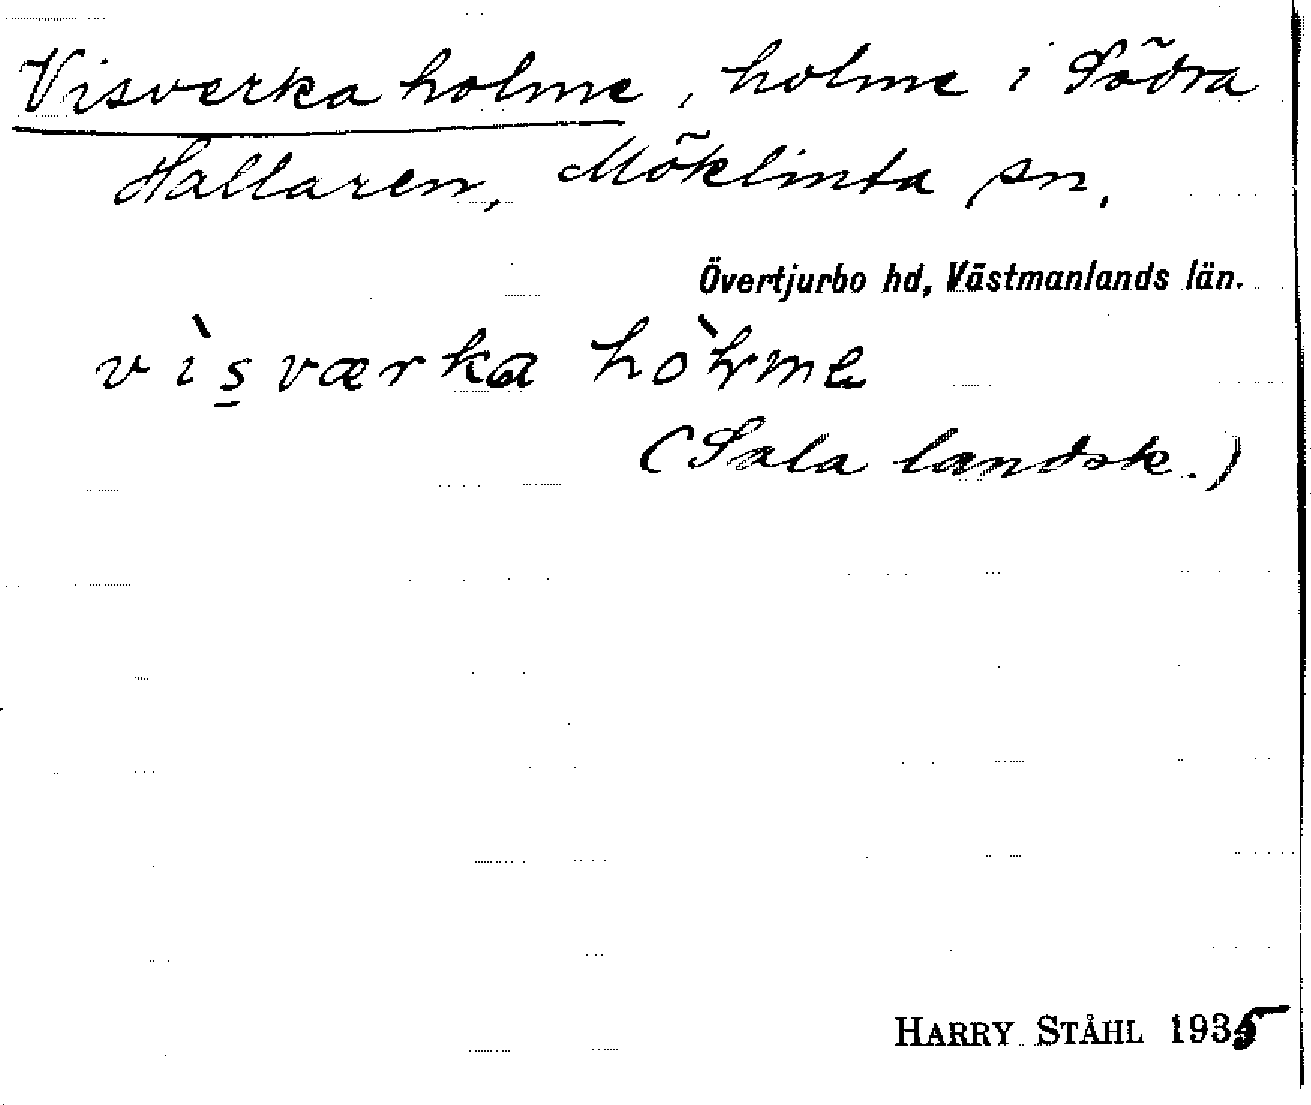 Visverka holme, holme i Södra
Hallaren, Möklinta sn.
Övertjurbo hd, Västmanlands län.
vìs̱værka hòłme
(Sala landsk.)
HARRY STÅHL 1935